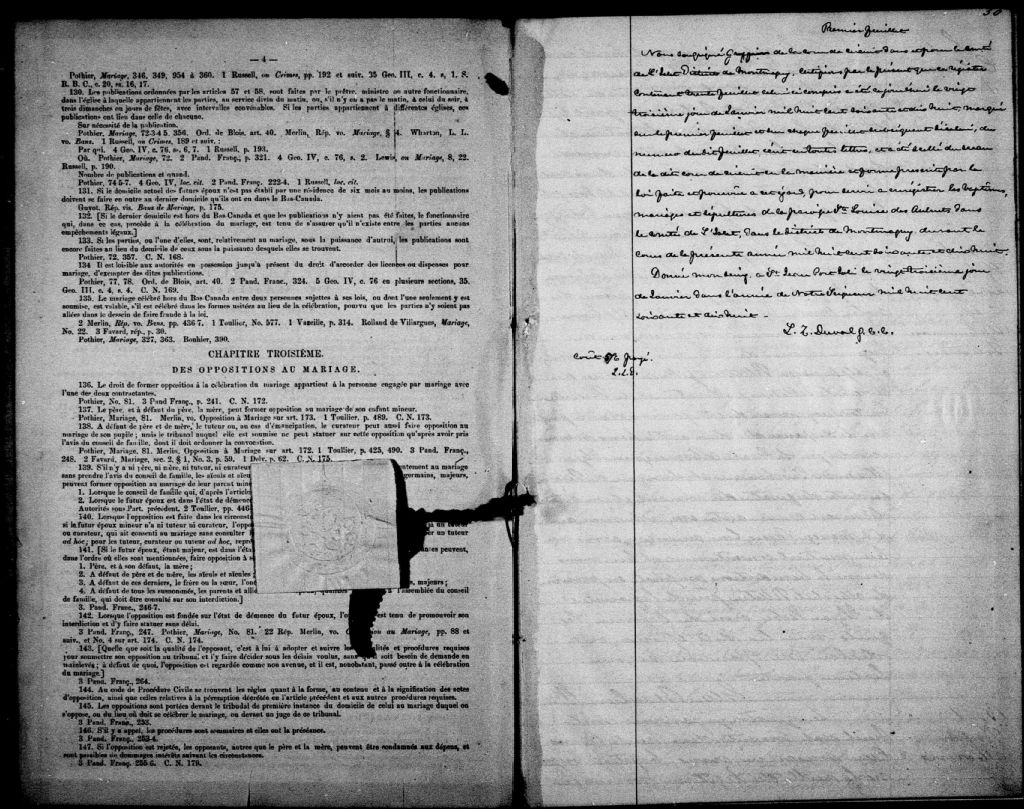 — 4 —
Pothier, Mariage, 346, 349, 354 à 360. 1 Russell, on Crimes, pp. 192 et suiv. 35 Geo. III, c. 4, s, 1. S.
R. B. C., c. 20, ss. 16, 17.
130. Les publications ordonnées par les articles 57 et 58, sont faites par le prêtre, ministre ou autre fonctionnaire,
dans l'église à laquelle appartiennent les parties, au service divin du matin, ou, s'il n'y en a pas le matin, à celui du soir, à
trois dimanches ou jours de fêtes, avec intervalles convenables. Si les parties appartiennent à différentes églises, ces
publications ont lieu dans celle de chacune.
Sur nécessité de la publication.
Pothier, Mariage, 72-3-4 5. 356. Ord. de Blois, art. 40. Merlin, Rép. vo. Mariage, § 4. Wharton, L. L.
vo. Bans. 1 Russell, on Crimes, 189 et suiv. :
Par qui. 4 Geo. IV, c. 76, ss. 6, 7. 1 Russell, p. 193.
Où. Pothier, Mariage, 72. 2 Pand. Franç., p. 321. 4 Geo. IV, c. 76, s. 2. Lewis, on Mariage, 8, 22.
Russell, p. 190.
Nombre de publications et quand.
Pothier, 74 5-7. 4 Geo. IV, loc. cit. 2 Pand. Franç. 222-4. 1 Russell, loc. cit.
131. Si le domicile actuel des futurs époux n'est pas établi par une résidence de six mois au moins, les publications
doivent se faire en outre au dernier domicile qu'ils ont eu dans le Bas-Canada.
Guyot. Rép. vis. Bans de Mariage, p. 175.
132. [Si le dernier domicile est hors du Bas-Canada et que les publications n'y aient pas été faites, le fonctionnaire
qui, dans ce cas, procède à la célébration du mariage, est tenu de s'assurer qu'il n'existe entre les parties aucuns
empêchements légaux.]
133. Si les parties, ou l'une d'elles, sont, relativement au mariage, sous la puissance d'autrui, les publications sont
encore faites au lieu du domicile de ceux sous la puissance desquels elles se trouvent.
Pothier, 72. 357. C. N. 168.
134 Il est loisible aux autorités en possession jusqu'à présent du droit d'accorder des licences ou dispenses pour
mariage, d'exempter des dites publications.
Pothier, 77, 78. Ord. de Blois, art. 40. 2 Pand. Franc., 324. 5 Geo. IV, c. 76 en plusieurs sections, 35.
Geo. III, c. 4, s. 4. C. N. 169.
135. Le mariage célébré hors du Bas Canada entre deux personnes sujettes à ses lois, ou dont l'une seulement y est
soumise, est valable, s'il est célébré dans les formes usitées au lieu de la célébration, pourvu que les parties n'y soient pas
allées dans le dessein de faire fraude à la loi.
2 Merlin, Rép. vo. Bans, pp. 436 7. 1 Toullier, No. 577. 1 Vazeille, p. 314. Rolland de Villargues, Mariage,
No. 22. 3 Favard, rép., p. 30.
Pothier, Mariage, 327, 363. Bouhier, 390.
CHAPITRE TROISIÈME.
DES OPPOSITIONS AU MARIAGE.
136. Le droit de former opposition à la célébration du mariage appartient à la personne engagée par mariage avec
l'une des deux contractantes.
Pothier, No. 81. 3 Pand Franç., p. 241. C. N. 172.
137. Le père, et à défaut du père, la mère, peut former opposition au mariage de son enfant mineur.
Pothier, Mariage, 81. Merlin, vo. Opposition à Mariage sur art. 173. 1 Toullier, p. 489. C. N. 173.
138. A défaut de père et de mère, le tuteur ou, au cas d'émancipation, le curateur peut aussi faire opposition au
mariage de son pupille ; mais le tribunal auquel elle est soumise ne peut statuer sur cette opposition qu'après avoir pris
l'avis du conseil de famille, dont il doit ordonner la convocation.
Pothier, Mariage, 81. Merlin, Opposition à Mariage sur art. 172. 1 Toullier, p. 425, 490. 3 Pand. Franç.,
248. 2 Favard, Mariage, sec. 2, § 1, No. 3, p. 59. 1 Delv. p. 62. C. N. 175.
139. S'il n'y a ni père, ni mère, ni tuteur, ni curateur
sans prendre l'avis du conseil de famille, les aïeuls et aïeu germains, majeurs,
peuvent former opposition au mariage de leur parent mine
1. Lorsque le conseil de famille qui, d'après l'articl
2. Lorsque le futur époux est dans l'état de démenc
Autorités sous Part. précédent. 2 Toullier, pp. 446-
140. Lorsque l'opposition est faite dans les circonst
si le futur époux mineur n'a ni tuteur ni curateur, l'oppo un tuteur
ou curateur, qui ait consenti au mariage sans consulter un tuteur
ad hoc; pour les tuteur, curateur ou tuteur ad hoc, repré
141. [Si le futur époux, étant majeur, est dans l'éta peuvent,
dans l'ordre où elles sont mentionnées, faire opposition à s
1. Père, et à son défaut, la mère ;
2. A défaut de père et de mère, les aïeuls et aïeules
3. A défaut de ces derniers, le frère ou la sœur, l'on majeurs ;
4. A défaut de tous les susnommés, les parents et allié l'assemblée du conseil
de famille, qui doit être consulté sur son interdiction.]
3. Pand. Franc., 246-7.
142. Lorsque l'opposition est fondée sur l'état de démence du futur époux, l' est tenu de promouvoir son
interdiction et d'y faire statuer sans délai.
3 Pand. Franç., 247. Pothier, Mariage, No. 81. 22 Rép. Merlin, vo. au Mariage, pp. 88 et
suiv., et No. 4 sur art. 174. C. N. 174.
143. [Quelle que soit la qualité de l'opposant, c'est à lui à adopter et suivre les formalités et procédures requises
pour soumettre son opposition au tribunal, et l'y faire décider sous les délais voulus, sans soit besoin de demande en
mainlevée ; à défaut de quoi, l'opposition est regardée comme non avenue, et il est, nonobstant, passé outre à la célébration
du mariage.]
3 Pand. Franc., 264.
144. Au code de Procédure Civile se trouvent les règles quant à la forme, au contenu et à la signification des actes
d'opposition, ainsi que celles relatives à la péremption décrétée en l'article précédent et aux autres procédures requises.
145. Les oppositions sont portées devant le tribunal de première instance du domicile de celui au mariage duquel on
s'oppose, ou du lieu où doit se célébrer le mariage, ou devant un juge de ce tribunal.
3 Pand. Franc., 253.
146. S'il y a appel, les procédures sont sommaires et elles ont la préséance.
3 Pand. Franç., 253-4.
147. Si l'opposition est rejetée, les opposants, autres que le père et la mère, peuvent être condamnés aux dépens, et
sont passibles de dommages intérêts suivant les circonstances.
3 Pand. Franç. 255-6. C. N. 179.
50
Premier feuillet
Nous soussigné Greffier de la cour de circuit dans et pour le comté
de L'Islet District de Montmagny, certifions par le présent que ce registre
contenant feuillets celui-ci compris a été ce jourd'hui le vingt
troisième jour de Janvier mil huit cent soixante et dix huit, marqué
sur le premier feuillet et sur chaque feuillet subséquent d'icelui, du
numéro du dit feuillet écrit en toutes lettres, et a été scellé du sceau
de la dite cour de circuit de la manière et forme prescrit par la
loi faite et pourvue à cet égard, pour servir à enregistrer les baptêmes,
mariages et sépultures de la paroisse Ste. Louise des Aulnets dans
le comté de L'Islet, dans le District de Montmagny, durant le
cours de la présente année mil huit cent soixante et dix huit.
Donné mon seing, à St. Jean Port Joli le vingt troisième jour
de Janvier dans l'année de Notre Seigneur mil huit cent
soixante et dix huit. -
L. Z. Duval g. c. c.
Coût payé.
L. Z. D.